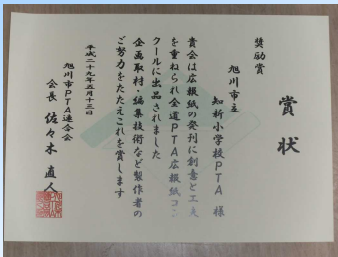 賞状
奨励賞
旭川市立
知新小学校PTA 様
貴会は広報紙の発刊に創意と工夫
を重ねられ全道PTA広報紙コン
クールに出品されました
企画取材・編集技術など製作者の
ご努力をたたえこれを賞します
平成二十九年五月十三日
旭川市PTA連合会
会長 佐々木 直人